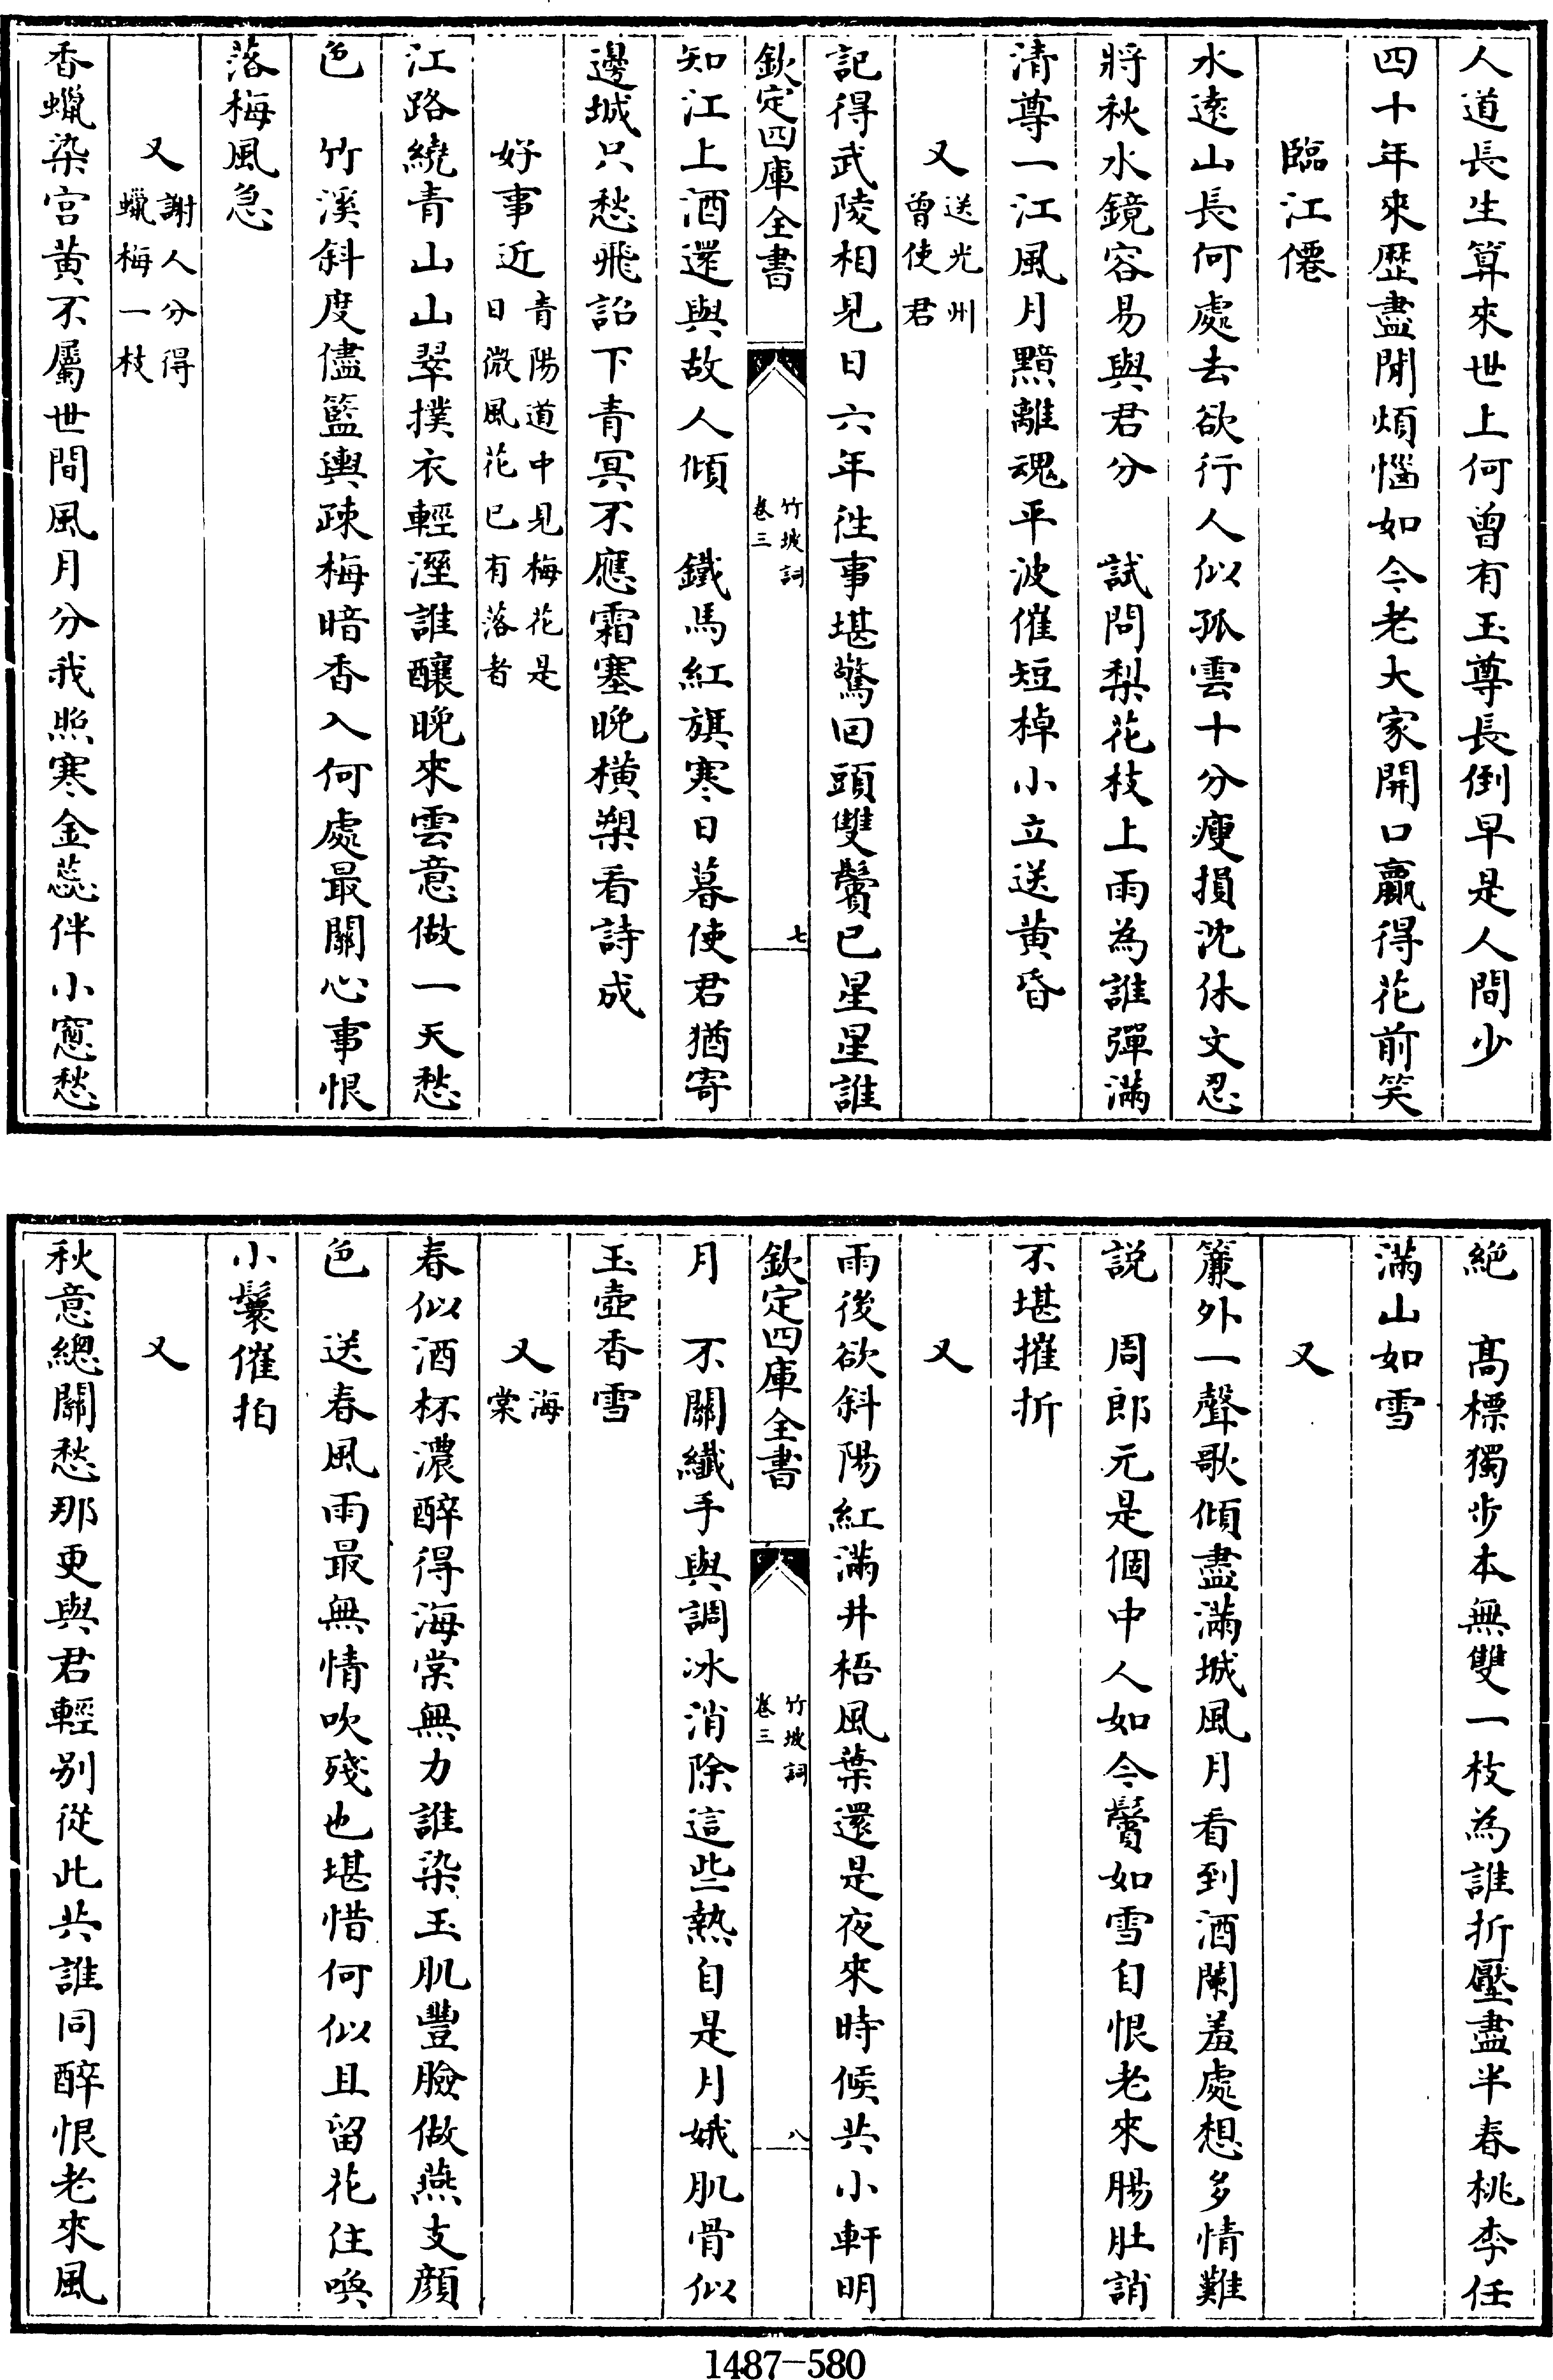 人道長生算來世上何曾有玉尊長倒早是人間少
四十年來歷盡閒煩惱如今老大家開口贏得花前笑
臨江僊
水遠山長何處去欲行人似孤雲十分瘦損沈休文忍
將秋水鏡容易與君分　試問梨花枝上雨為誰彈滿
清尊一江風月黯離魂平波催短棹小立送黄昏
又送光州曾使君
記得武陵相見日六年徃事堪驚回頭雙鬢已星星誰
欽定四庫全書
竹坡詞
卷三
七
知江上酒還與故人傾　鐵馬紅旗寒日暮使君猶寄
邊城只愁飛詔下青冥不應霜塞晚橫槊看詩成
好事近青陽道中見梅花是日微風花已有落者
江路繞青山山翠撲衣輕溼誰釀晚來雲意做一天愁
色　竹溪斜度儘籃輿疎梅暗香入何處最關心事恨
落梅風急
又謝人分得蠟梅一枝
香蠟染宫黄不屬世間風月分我照寒金蕊伴小窻愁
絕　髙標獨步本無雙一枝為誰折壓盡半春桃李任
滿山如雪
又
簾外一聲歌傾盡滿城風月看到酒闌羞處想多情難
説　周郎元是個中人如今鬢如雪自恨老來腸肚誚
不堪摧折
又
雨後欲斜陽紅滿井梧風葉還是夜來時候共小軒明
欽定四庫全書
竹坡詞
卷三
八
月　不關纖手與調冰消除這些熱自是月娥肌骨似
玉壺香雪
又海棠
春似酒杯濃醉得海棠無力誰染玉肌豐臉做燕支顔
色　送春風雨最無情吹殘也堪惜何似且留花住喚
小鬟催拍
又
秋意總關愁那更與君輕别從此共誰同醉恨老來風
1487-580